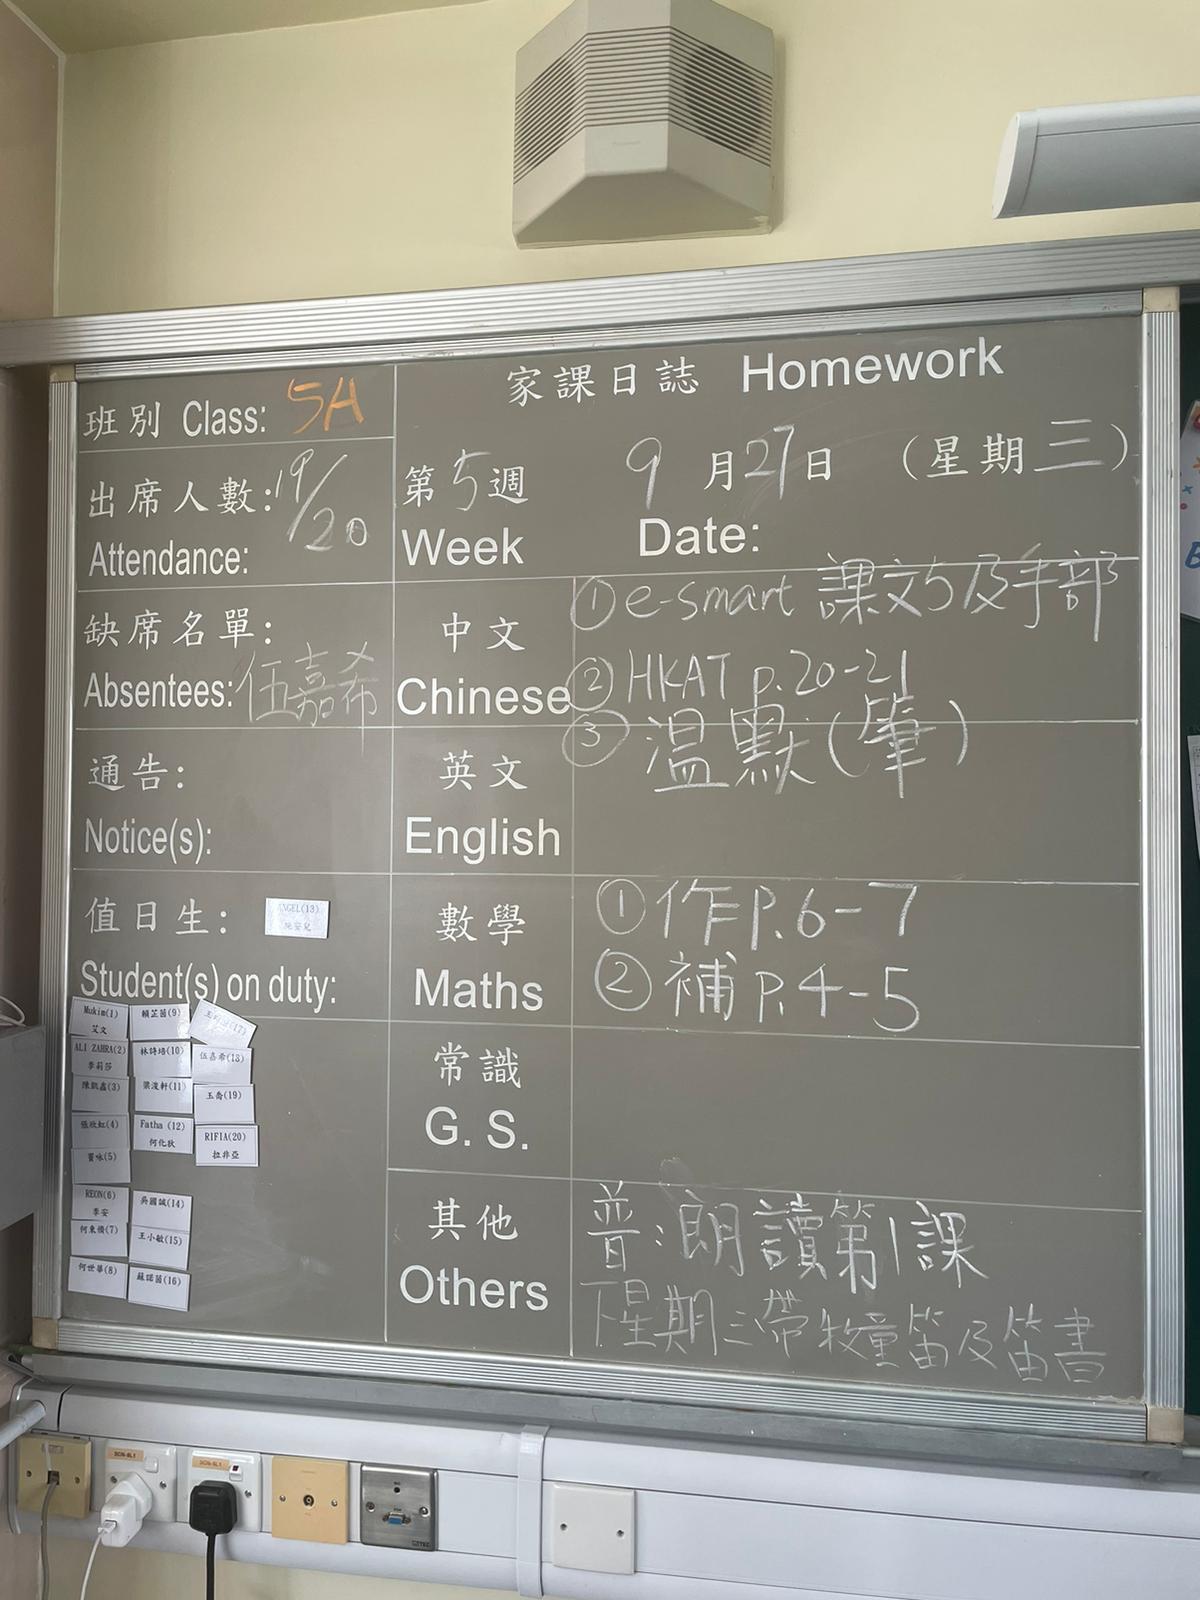 家課日誌 Homework
班別 Class: 5A
出席人數: 19/20
Attendance:
第5週
Week
9月27日 (星期三)
Date:
缺席名單:
Absentees: 伍嘉希
中文
Chinese
① e-smart 課文5及手部
② HKAT p.20-21
③ 溫默(肇)
通告:
Notice(s):
英文
English
值日生:
ANGEL(13)
Student(s) on duty:
數學
Maths
① 作P.6-7
② 補P.4-5
常識
G. S.
其他
Others
普:朗讀第1課
下星期三帶牧童笛及笛書
Mukim(1)
艾文
ALI ZAHRA(2)
李莉莎
陳凱鑫(3)
張欣虹(4)
REON(6)
李安
何東橋(7)
何世華(8)
賴芷茵(9)
林詩培(10)
梁浚軒(11)
Fatha (12)
何化狄
吳國誠(14)
王小敏(15)
蘇諾茵(16)
伍嘉希(18)
玉喬(19)
RIFIA(20)
拉非亞